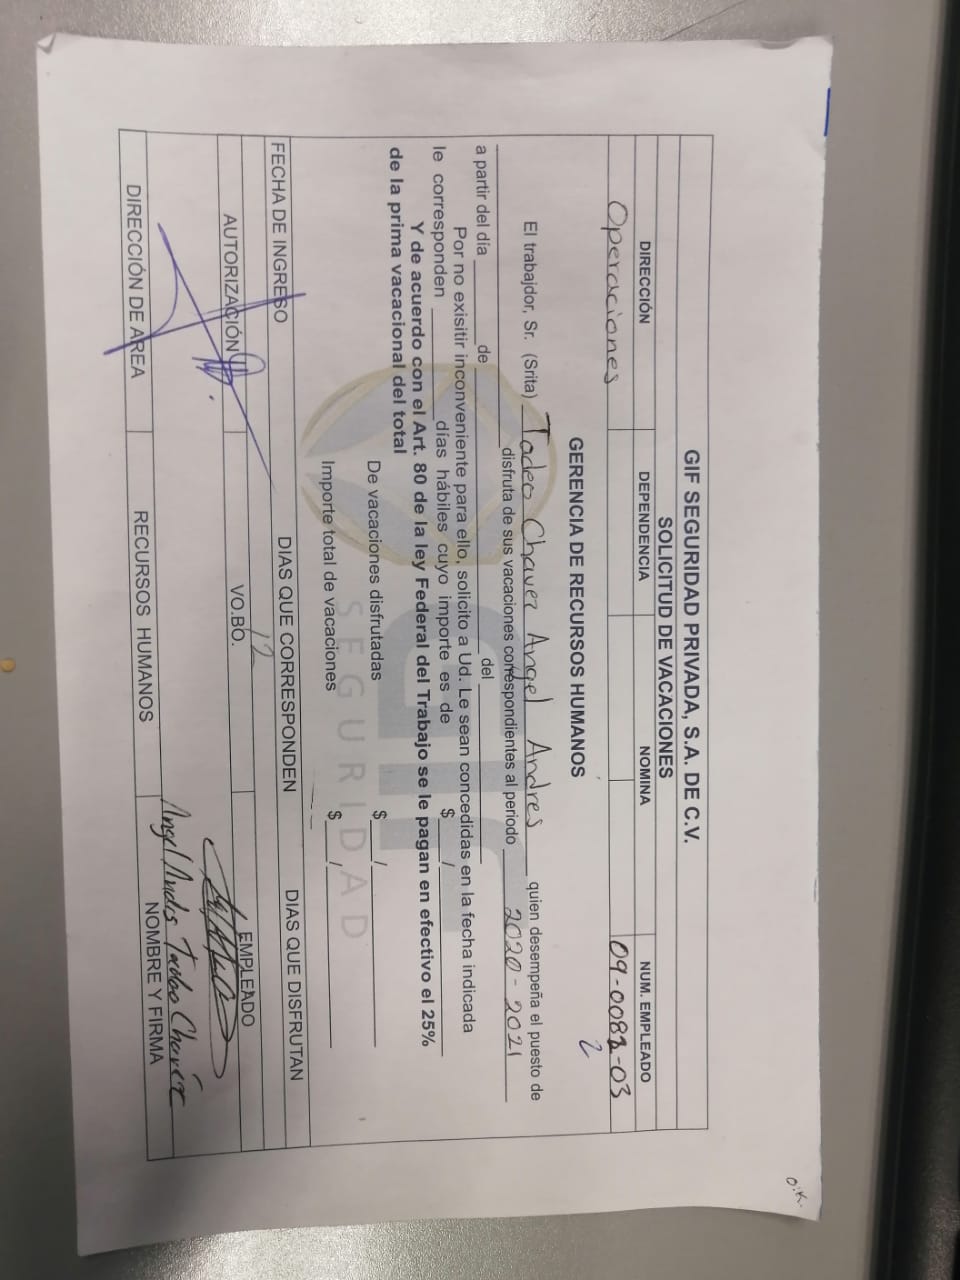 O.K.
GIF SEGURIDAD PRIVADA, S.A. DE C.V.
SOLICITUD DE VACACIONES
DIRECCIÓN DEPENDENCIA NOMINA NUM. EMPLEADO
Operaciones 09-0082-03
2
GERENCIA DE RECURSOS HUMANOS
El trabajdor, Sr. (Srita) Tadeo Chavez Angel Andres quien desempeña el puesto de
disfruta de sus vacaciones correspondientes al periodo 2020-2021
a partir del día de del
Por no exisitir inconveniente para ello, solicito a Ud. Le sean concedidas en la fecha indicada
le corresponden días hábiles cuyo importe es de $ /
Y de acuerdo con el Art. 80 de la ley Federal del Trabajo se le pagan en efectivo el 25%
de la prima vacacional del total
De vacaciones disfrutadas $ /
Importe total de vacaciones $ /
SEGURIDAD
FECHA DE INGRESO DIAS QUE CORRESPONDEN DIAS QUE DISFRUTAN
12
AUTORIZACIÓN VO.BO. EMPLEADO
Angel Andres Tadeo Chavez
DIRECCIÓN DE AREA RECURSOS HUMANOS NOMBRE Y FIRMA